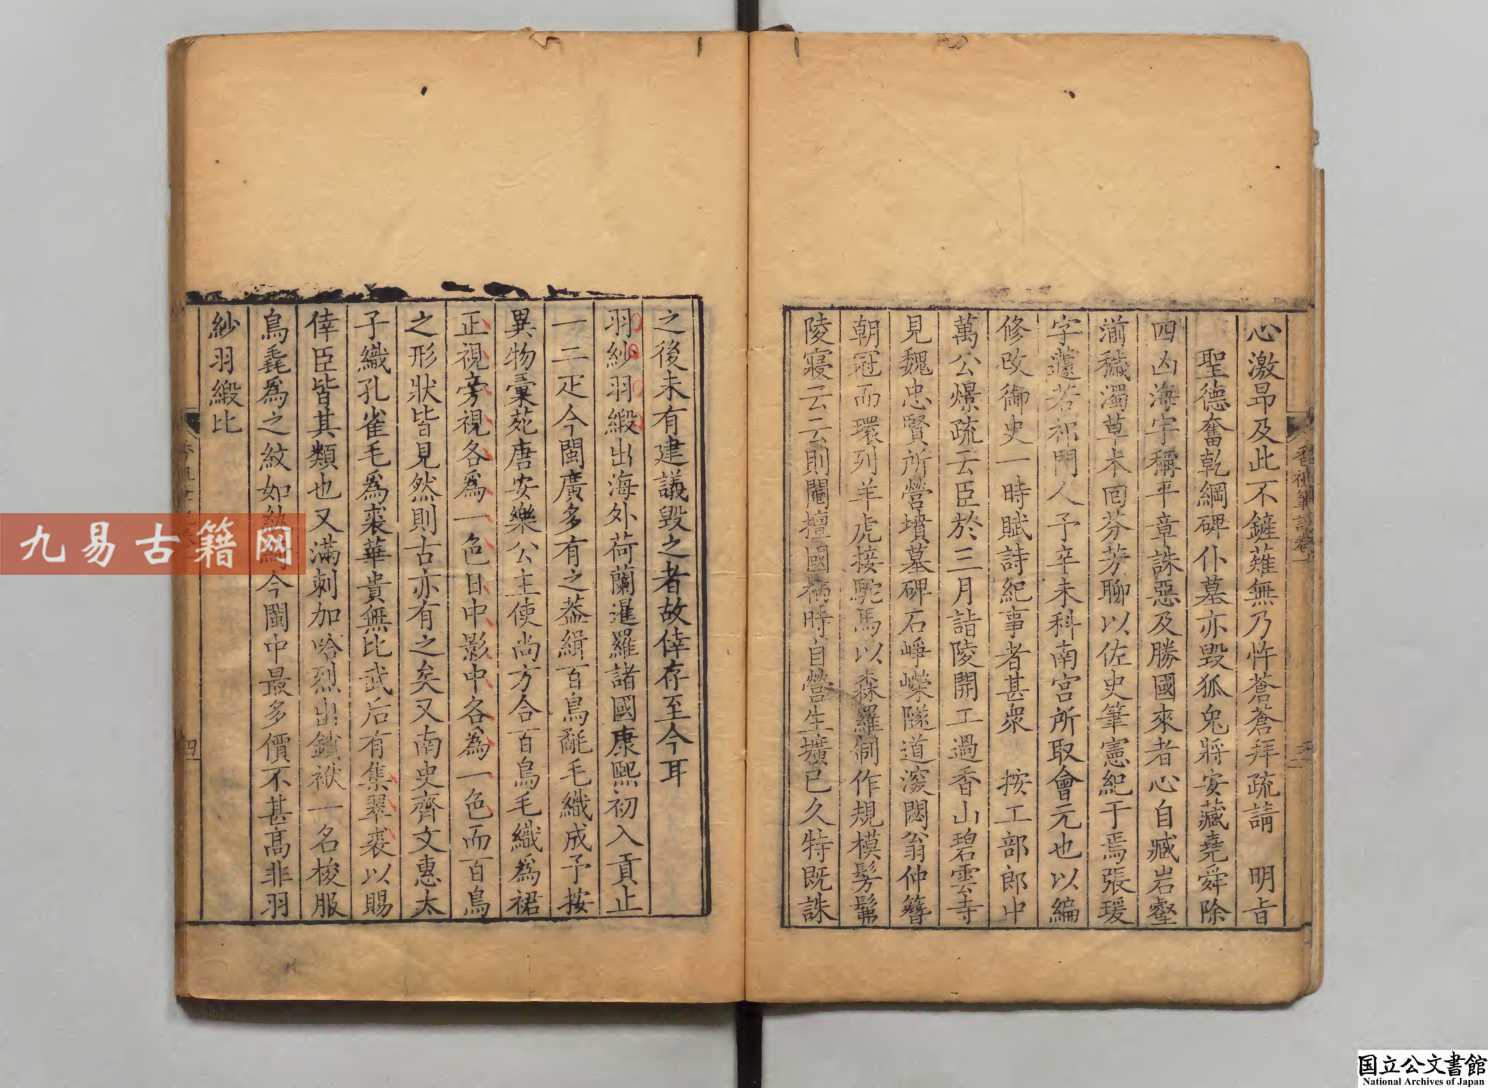 心激昂及此不鏟薙無乃忤蒼蒼拜疏請　明旨
聖德奮乾綱碑仆墓亦毀狐兔將安藏堯舜除
四凶海宇稱平章誅惡及勝國來者心自臧岩壑
湔穢濁草木回芬芳聊以佐史筆憲紀于焉張瑗
字蘧若祁門人予辛未科南宮所取會元也以編
修改御史一時賦詩紀事者甚衆　按工部郎中
萬公燝疏云臣於三月詣陵開工過香山碧雲寺
見魏忠賢所營墳墓碑石崢嶸隧道深閟翁仲簪
朝冠而環列羊虎接駝馬以森羅制作規模髣髴
陵寢云云則閹擅國柄時自營生壙已久特既誅
之後未有建議毀之者故倖存至今耳
羽紗羽緞出海外荷蘭暹羅諸國康熙初入貢止
一二疋今閩廣多有之葢緝百鳥氄毛織成予按
異物彙苑唐安樂公主使尚方合百鳥毛織為裙
正視旁視各為一色日中影中各為一色而百鳥
之形狀皆見然則古亦有之矣又南史齊文惠太
子織孔雀毛為裘華貴無比武后有集翠裘以賜
倖臣皆其類也又滿刺加哈烈出鎖袱一名梭服
鳥毳為之紋如紈綺今閩中最多價不甚高非羽
紗羽緞比
香祖筆記卷一
四
九易古籍网
国立公文書館
National Archives of Japan